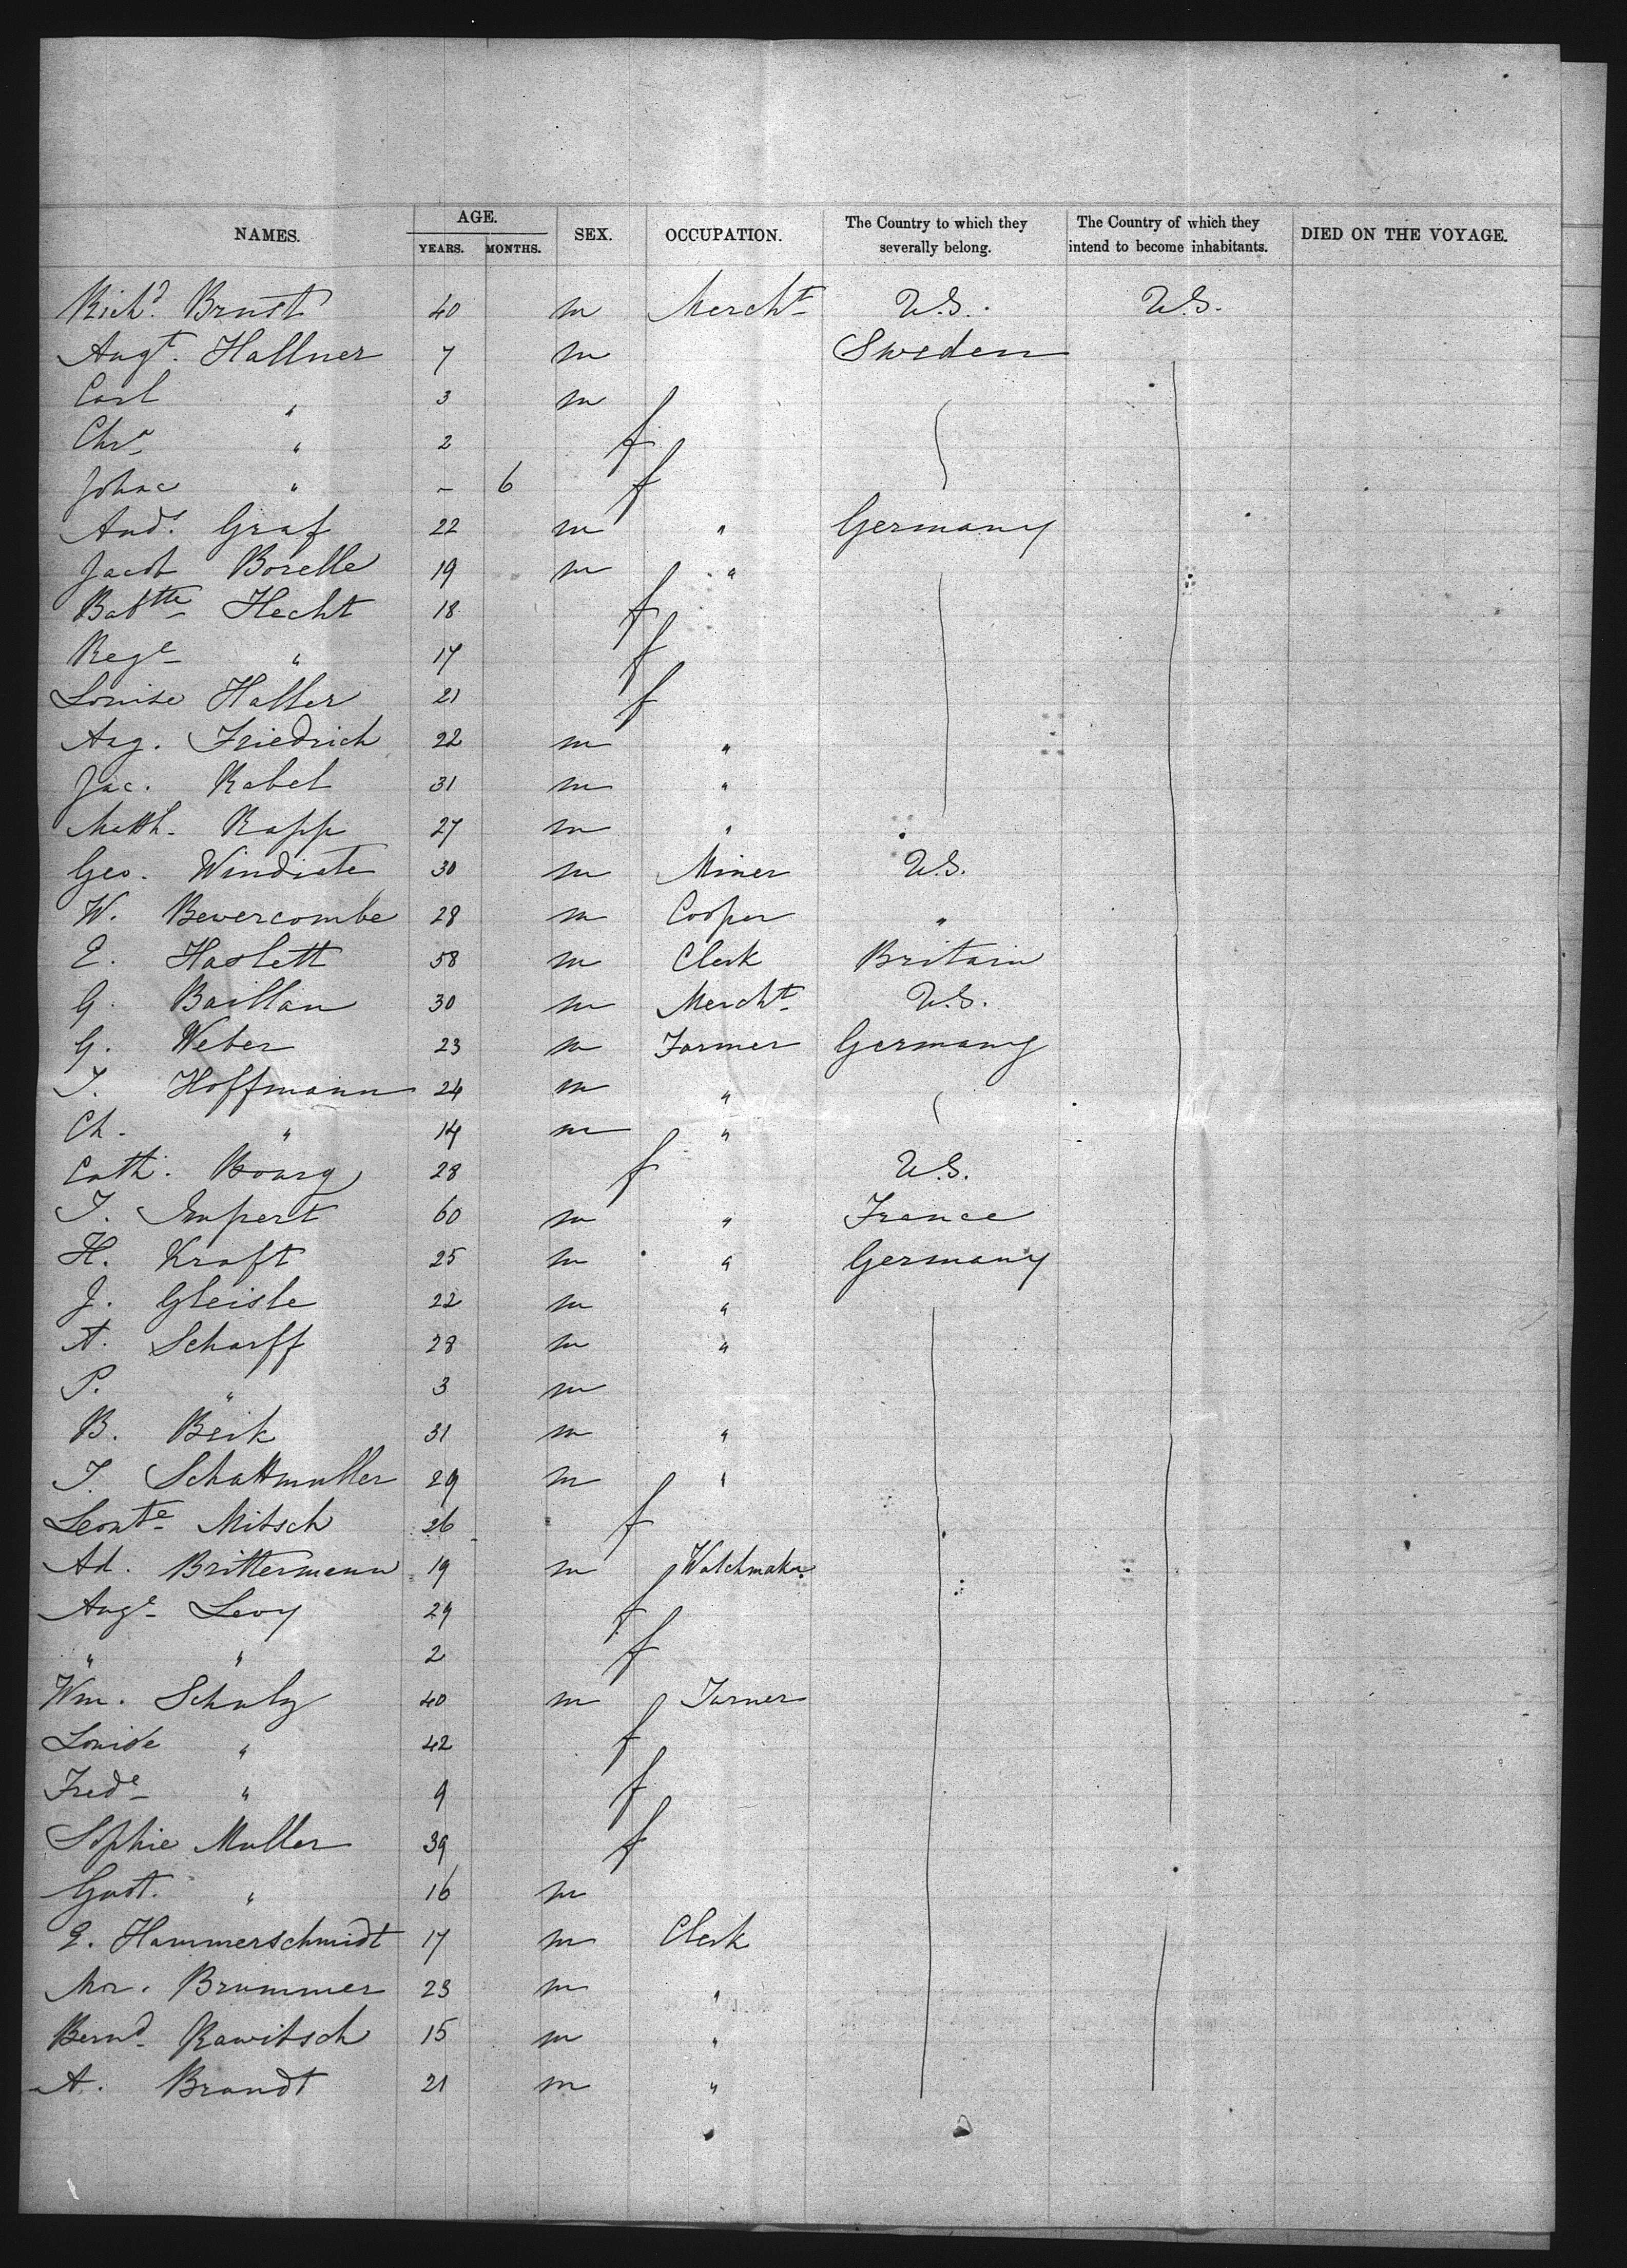 NAMES. AGE. YEARS. MONTHS. SEX. OCCUPATION. The Country to which they severally belong. The Country of which they intend to become inhabitants. DIED ON THE VOYAGE.
Richd. Brust 40 m Mercht U.S. U.S.
Augt. Hallner 7 m Sweden
Carl " 3 m
Chre " 2 f
Johae " - 6 f
Ands. Graf 22 m " Germany
Jacob Borelle 19 m "
Babtte Hecht 18 f
Rege " 17 f
Louise Haller 21 f
Aug. Friedrich 22 m "
Jac. Rabel 31 m "
Matth. Rapp 27 m "
Geo. Windiate 30 m Miner U.S.
W. Bevercombe 28 m Cooper "
E. Haslett 58 m Clerk Britain
G. Baillan 30 m Mercht U.S.
G. Weber 23 m Farmer Germany
J. Hoffmann 24 m "
Ch. " 14 m "
Cath. Bourg 28 f U.S.
J. Impert 60 m " France
H. Kraft 25 m " Germany
J. Gleisle 22 m "
A. Scharff 28 m "
P. " 3 m
B. Beik 31 m "
J. Schattmuller 29 m "
Leonte Mitsch 26 f
Ad. Brittermann 19 m Watchmaker
Auge Levy 29 f
" " 2 f
Wm. Schulz 40 m Turner
Louise " 42 f
Frede " 9 f
Sophie Muller 39 f
Gust. " 16 m
E. Hammerschmidt 17 m Clerk
Mor. Brummer 23 m "
Bernd Rawitsch 15 m "
A. Brandt 21 m "